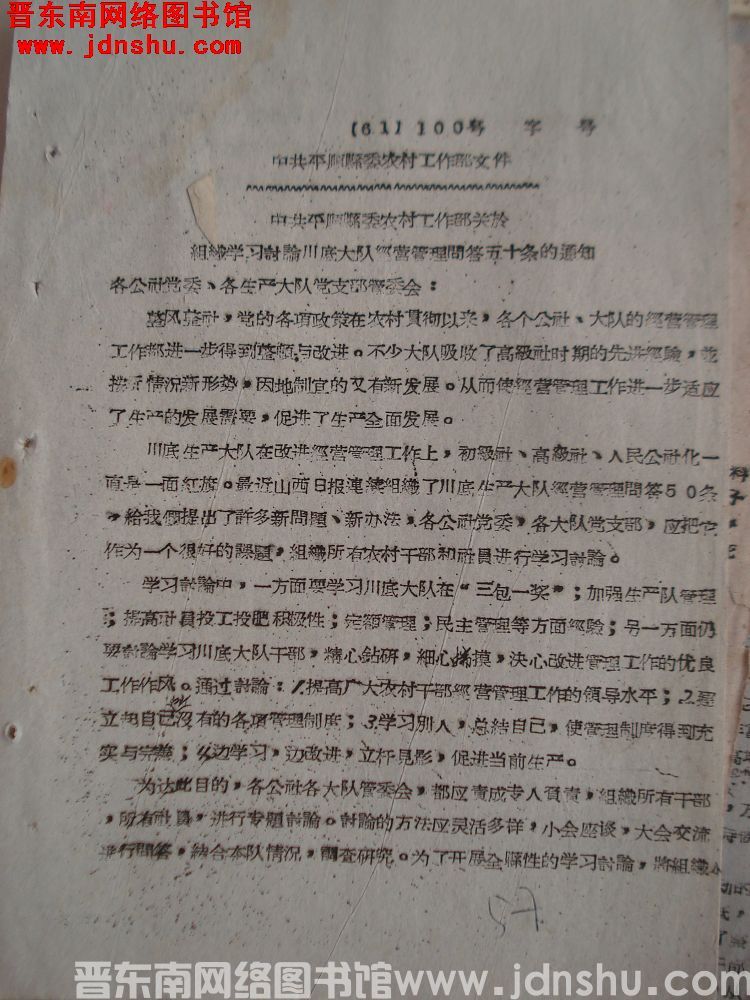 晋东南网络图书馆
www.jdnshu.com
[61] 100号 字 号
中共平顺縣委农村工作部文件
中共平顺縣委农村工作部关於
組織学习討論川底大队經营管理問答五十条的通知
各公社党委、各生产大队党支部管委会：
整风整社，党的各項政策在农村貫彻以来，各个公社、大队的經营管理
工作都进一步得到整頓与改进。不少大队吸收了高級社时期的先进經驗，並
情况新形势，因地制宜的又有新发展。从而使經营管理工作进一步适应
了生产的发展需要，促进了生产全面发展。
川底生产大队在改进經营管理工作上，初級社、高級社、人民公社化一
直是一面紅旗。最近山西日报連續組織了川底生产大队經营管理問答50条
，給我們提出了許多新問題、新办法，各公社党委，各大队党支部，应把它
作为一个很好的課題，組織所有农村干部和社員进行学习討論。
学习討論中，一方面要学习川底大队在“三包一奖”；加强生产队管理
；提高社員投工投肥积极性；定額管理；民主管理等方面經驗；另一方面仍
要討論学习川底大队干部，精心鉆研，細心揣摸，决心改进管理工作的优良
工作作风。通过討論：1.提高广大农村干部經营管理工作的領导水平；2.建
立起自己没有的各項管理制度；3.学习别人，总結自己，使管理制度得到充
实与完善；4.边学习，边改进，立杆見影，促进当前生产。
为达此目的，各公社各大队管委会，都应責成专人負責，組織所有干部
，所有社員，进行专題討論。討論的方法应灵活多样，小会座谈，大会交流
进行問答，結合本队情况，調查研究。为了开展全縣性的学习討論，將組織
57
料
晋东南网络图书馆www.jdnshu.com